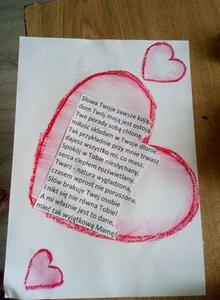 Słowa Twoje zawsze koją,
dom Twój moją jest ostoją.
Twe porady sobą chłonę,
miłość składam w Twoje dłonie.
Tak przykładnie przy mnie trwasz
dajesz wszystko mi, co masz.
Spokój w Tobie niesłychany,
serca ciepłem rozświetlany.
Twarz - natura wygładzona,
czasem wprost nie poruszona.
Słów brakuje Twej osobie
i nikt się nie równa Tobie!
A mi właśnie jest to dane,
mieć tak wyjątkową Mamę!